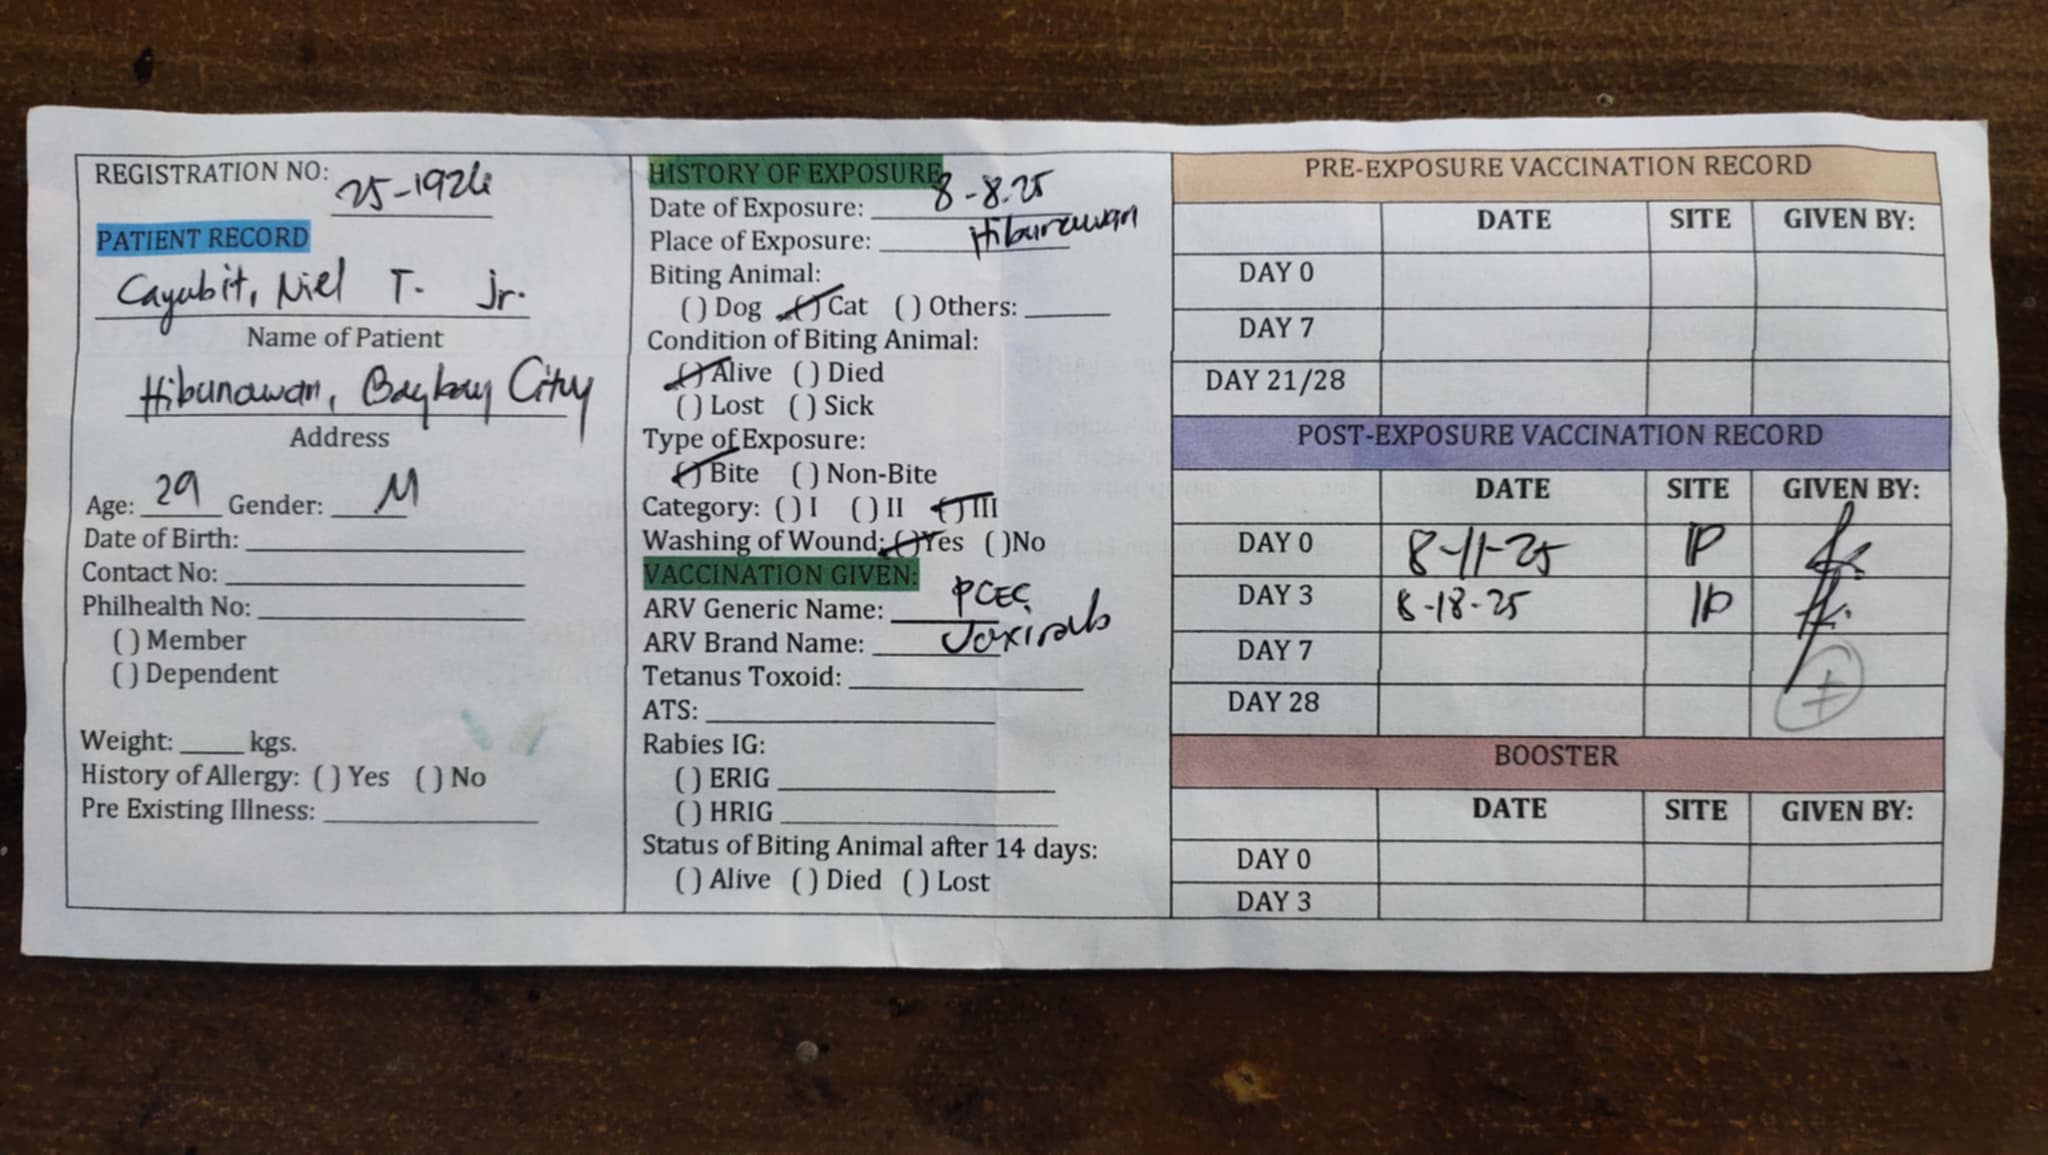 REGISTRATION NO: 25-1924
PATIENT RECORD
Cayubit, Niel T. Jr.
Name of Patient
Hibunawan, Baybay City
Address
Age: 29 Gender: M
Date of Birth:
Contact No:
Philhealth No:
( ) Member
( ) Dependent
Weight: ____ kgs.
History of Allergy: ( ) Yes ( ) No
Pre Existing Illness:
HISTORY OF EXPOSURE
Date of Exposure: 8-8-25
Place of Exposure: Hibunawan
Biting Animal:
( ) Dog (/) Cat ( ) Others:
Condition of Biting Animal:
(/) Alive ( ) Died
( ) Lost ( ) Sick
Type of Exposure:
(/) Bite ( ) Non-Bite
Category: ( ) I ( ) II (/) III
Washing of Wound: (/) Yes ( )No
VACCINATION GIVEN:
ARV Generic Name: PCEC
ARV Brand Name: Vaxirab
Tetanus Toxoid:
ATS:
Rabies IG:
( ) ERIG
( ) HRIG
Status of Biting Animal after 14 days:
( ) Alive ( ) Died ( ) Lost
PRE-EXPOSURE VACCINATION RECORD
DATE SITE GIVEN BY:
DAY 0
DAY 7
DAY 21/28
POST-EXPOSURE VACCINATION RECORD
DATE SITE GIVEN BY:
DAY 0 8-11-25 ID
DAY 3 8-18-25 ID
DAY 7
DAY 28
BOOSTER
DATE SITE GIVEN BY:
DAY 0
DAY 3